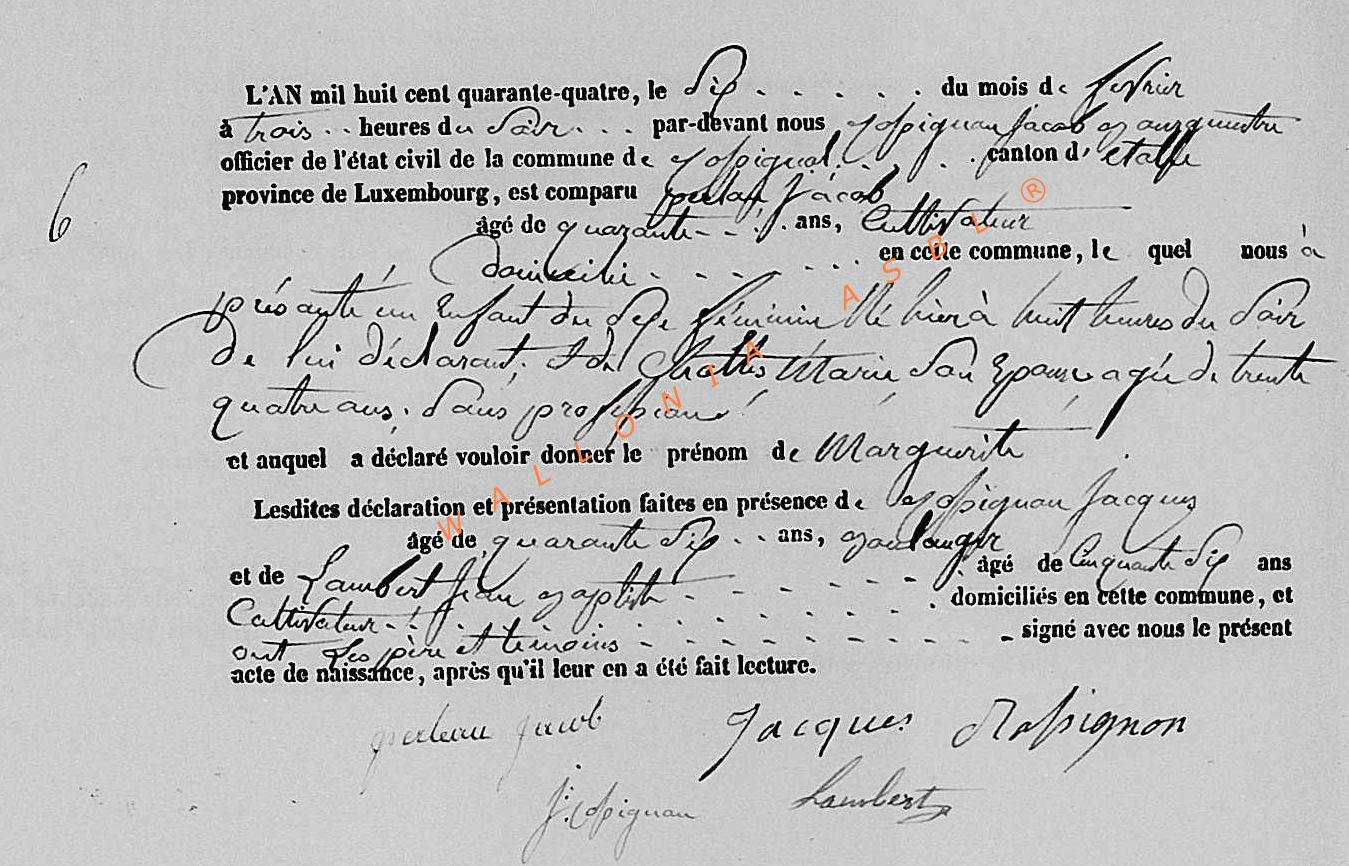 L'AN mil huit cent quarante-quatre, le Six du mois de fevrier
à trois heures du Soir par-devant nous Rossignon Jacob Bourguestre
officier de l'état civil de la commune de Rossignol canton d'étalle
province de Luxembourg, est comparu Jacob
6
âgé de quarante ans, Cultivateur
domicilié en cette commune, le quel nous à
présanté un Enfant du Sexe féminin Né hier à huit heures du Soir
de lui déclarant, et de Marie Son Epouse agée de trente
quatre ans, Sans profession
et auquel a déclaré vouloir donner le prénom de Marguerite
Lesdites déclaration et présentation faites en présence de Rossignon Jacques
âgé de quarante Six ans, Boulanger
et de Lambert Jean Baptiste âgé de Cinquante Six ans
Cultivateur domiciliés en cette commune, et
ont Les père et témoins signé avec nous le présent
acte de naissance, après qu'il leur en a été fait lecture.
Jacob Jacques Rossignon
J: Rossignon Lambert
WALLONIA ASBL ®